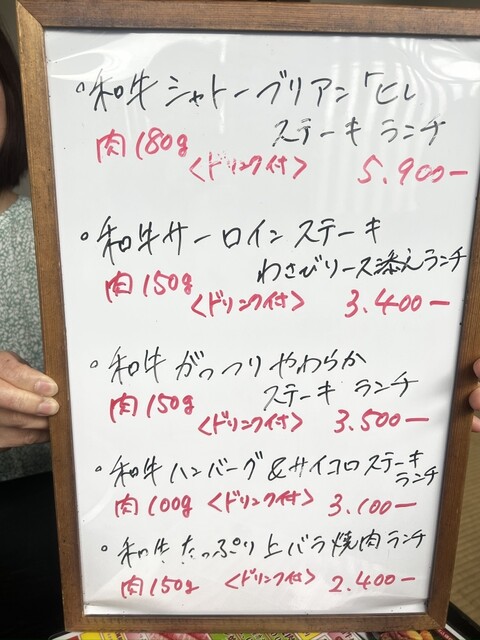 ・和牛シャトーブリアン「ヒレ
ステーキ ランチ
肉180g
<ドリンク付> 5.900ー
・和牛サーロインステーキ
わさびリース添えランチ
肉150g
<ドリンク付> 3.400ー
・和牛がっつりやわらか
ステーキ ランチ
肉150g
<ドリンク付> 3.500ー
・和牛ハンバーグ&サイコロステーキ
ランチ
肉100g <ドリンク付> 3.100ー
・和牛たっぷり上バラ焼肉ランチ
肉150g <ドリンク付> 2.400ー